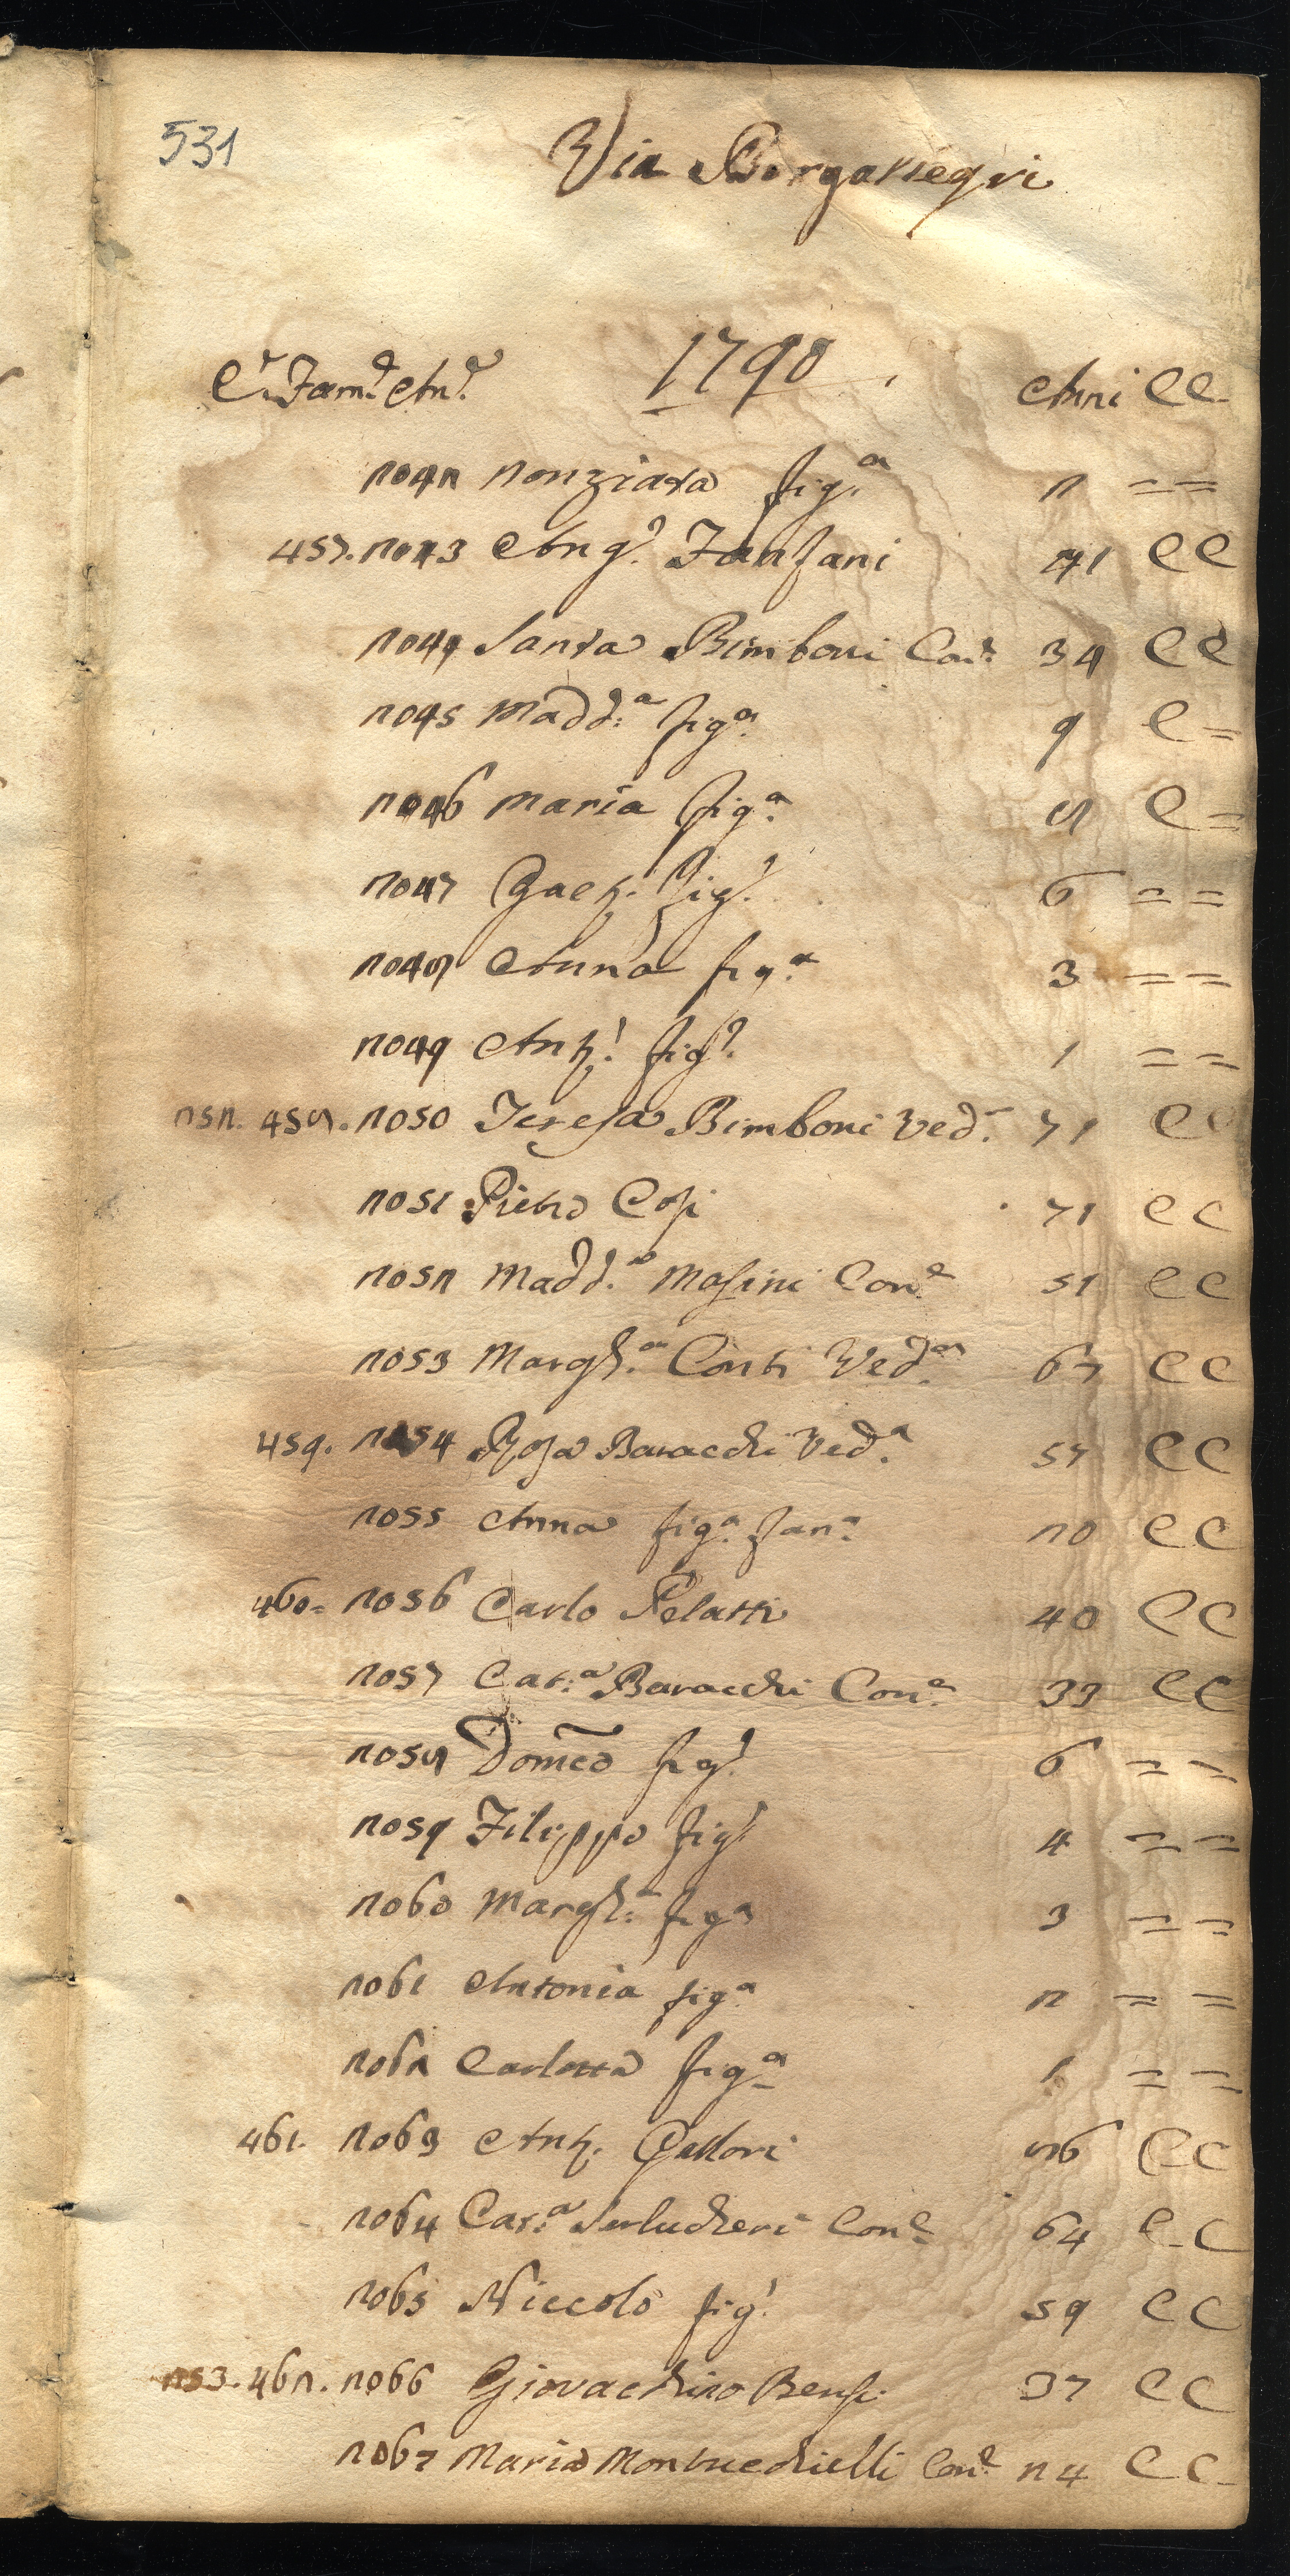 531
Via Borgallegri
1790
C.e Fam.e An.e Anni CC
2042 Nonziata fig.a 2 = =
457. 2043 Ang.o Fanfani 41 CC
2044 Santa Bimboni Con.e 34 CC
2045 Madd.a fig.a 9 C =
2046 Maria fig.a 8 C =
2047 Gaet.o fig.o 6 = =
2048 Anna fig.a 3 = =
2049 Ant.o fig.o 1 = =
252. 458. 2050 Teresa Bimboni Ved.a 71 CC
2051 Pietro Cosi 71 CC
2052 Madd.a Masini Con.e 51 CC
2053 Margh.a Conti Ved.a 67 CC
459. 2054 Rosa Baracchi Ved.a 57 CC
2055 Anna fig.a Fan.a 20 CC
460= 2056 Carlo Pelatti 40 CC
2057 Cat.a Baracchi Con.e 33 CC
2058 Domco fig.o 6 = =
2059 Filippo fig.o 4 = =
2060 Margh.a fig.a 3 = =
2061 Antonia fig.a 2 = =
2062 Carlotta fig.a 1 = =
461. 2063 Ant. Gallori 86 CC
2064 Cat.a Serlucheri Con.e 64 CC
2065 Niccolò fig.o 59 CC
253. 462. 2066 Giovacchino Bensi 37 CC
2067 Maria Montucchielli Con.e 24 CC